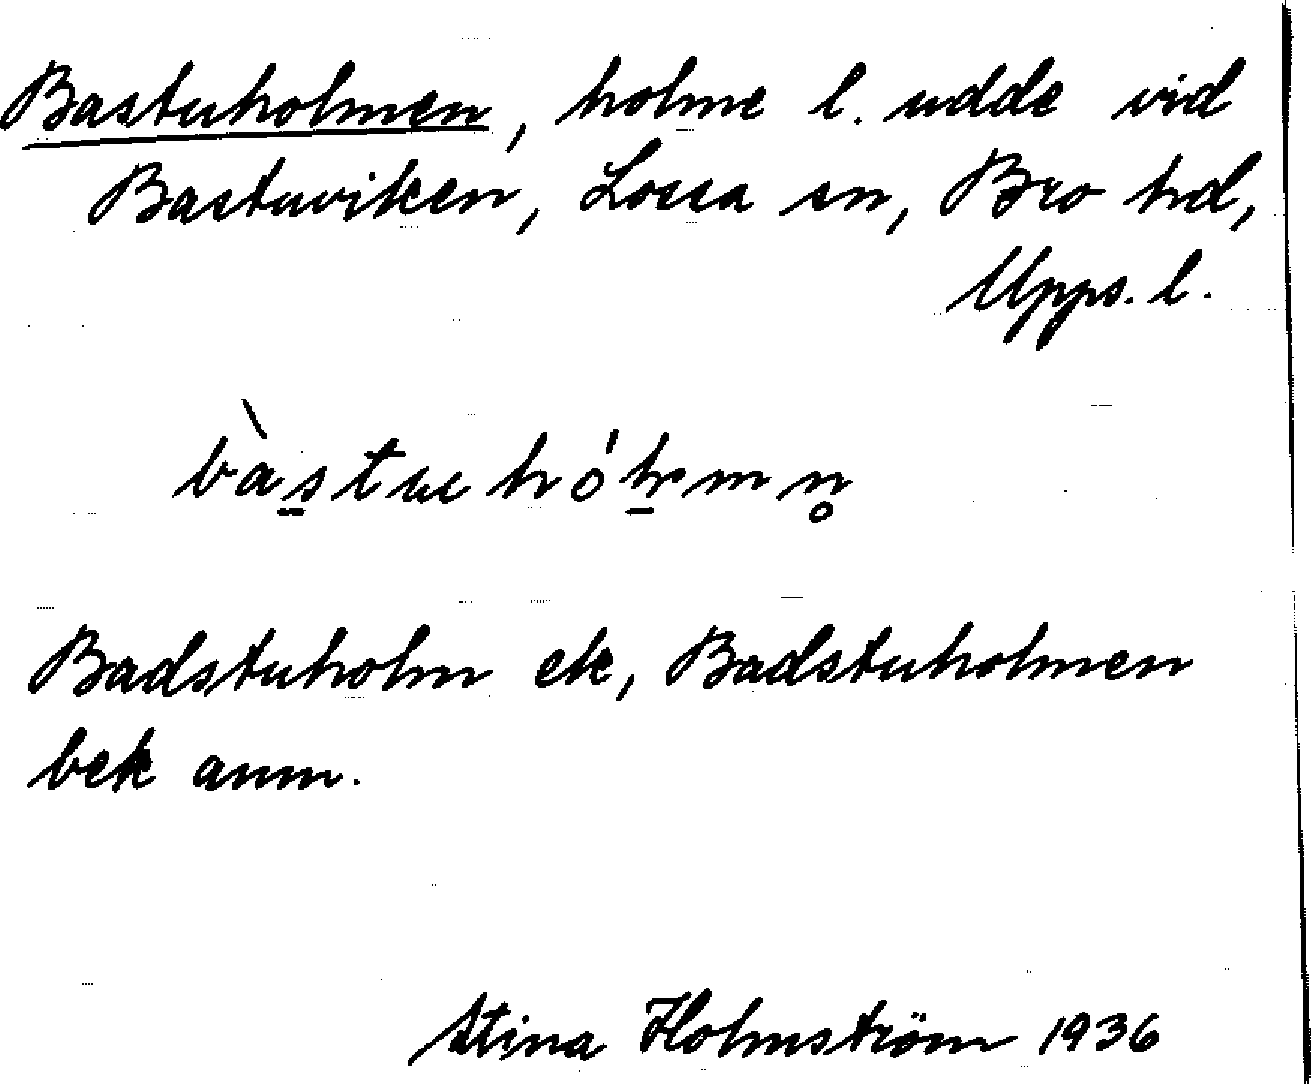 Bastuholmen, holme l. udde vid
Bastuviken, Lossa sn, Bro hd,
Upps. l.
Badstuholm ek, Badstuholmen
bek anm.
Stina Holmström 1936